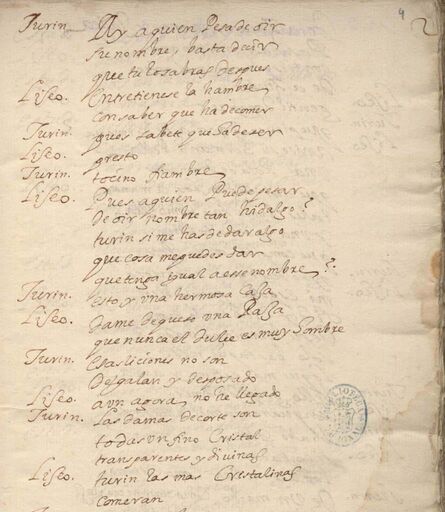 4
2
Turin. Ay a quien Pesa de oir
su nombre, basta decir
que tu lo sabras despues
Liseo. Entretienese la hambre
con saber que ha de comer
Turin. pues sabete que ha de ser
Liseo. presto
Turin. tocino fiambre
Liseo. Pues a quien Puede pesar
de oir nombre tan hidalgo?
turin si me has de dar algo
que cosa me puedes dar
que tenga igual a ese nombre?
Turin. Esto y una hermosa Caxa
Liseo. Dame de queso una Raxa
que nunca el dulce es muy hombre
Turin. Esas liciones no son
De galan y desposado
Liseo. aun agora, no he llegado
Turin. Las damas de corte son
todas un fino Cristal
transparentes y divinas
Liseo. turin las mas Cristalinas
comeran